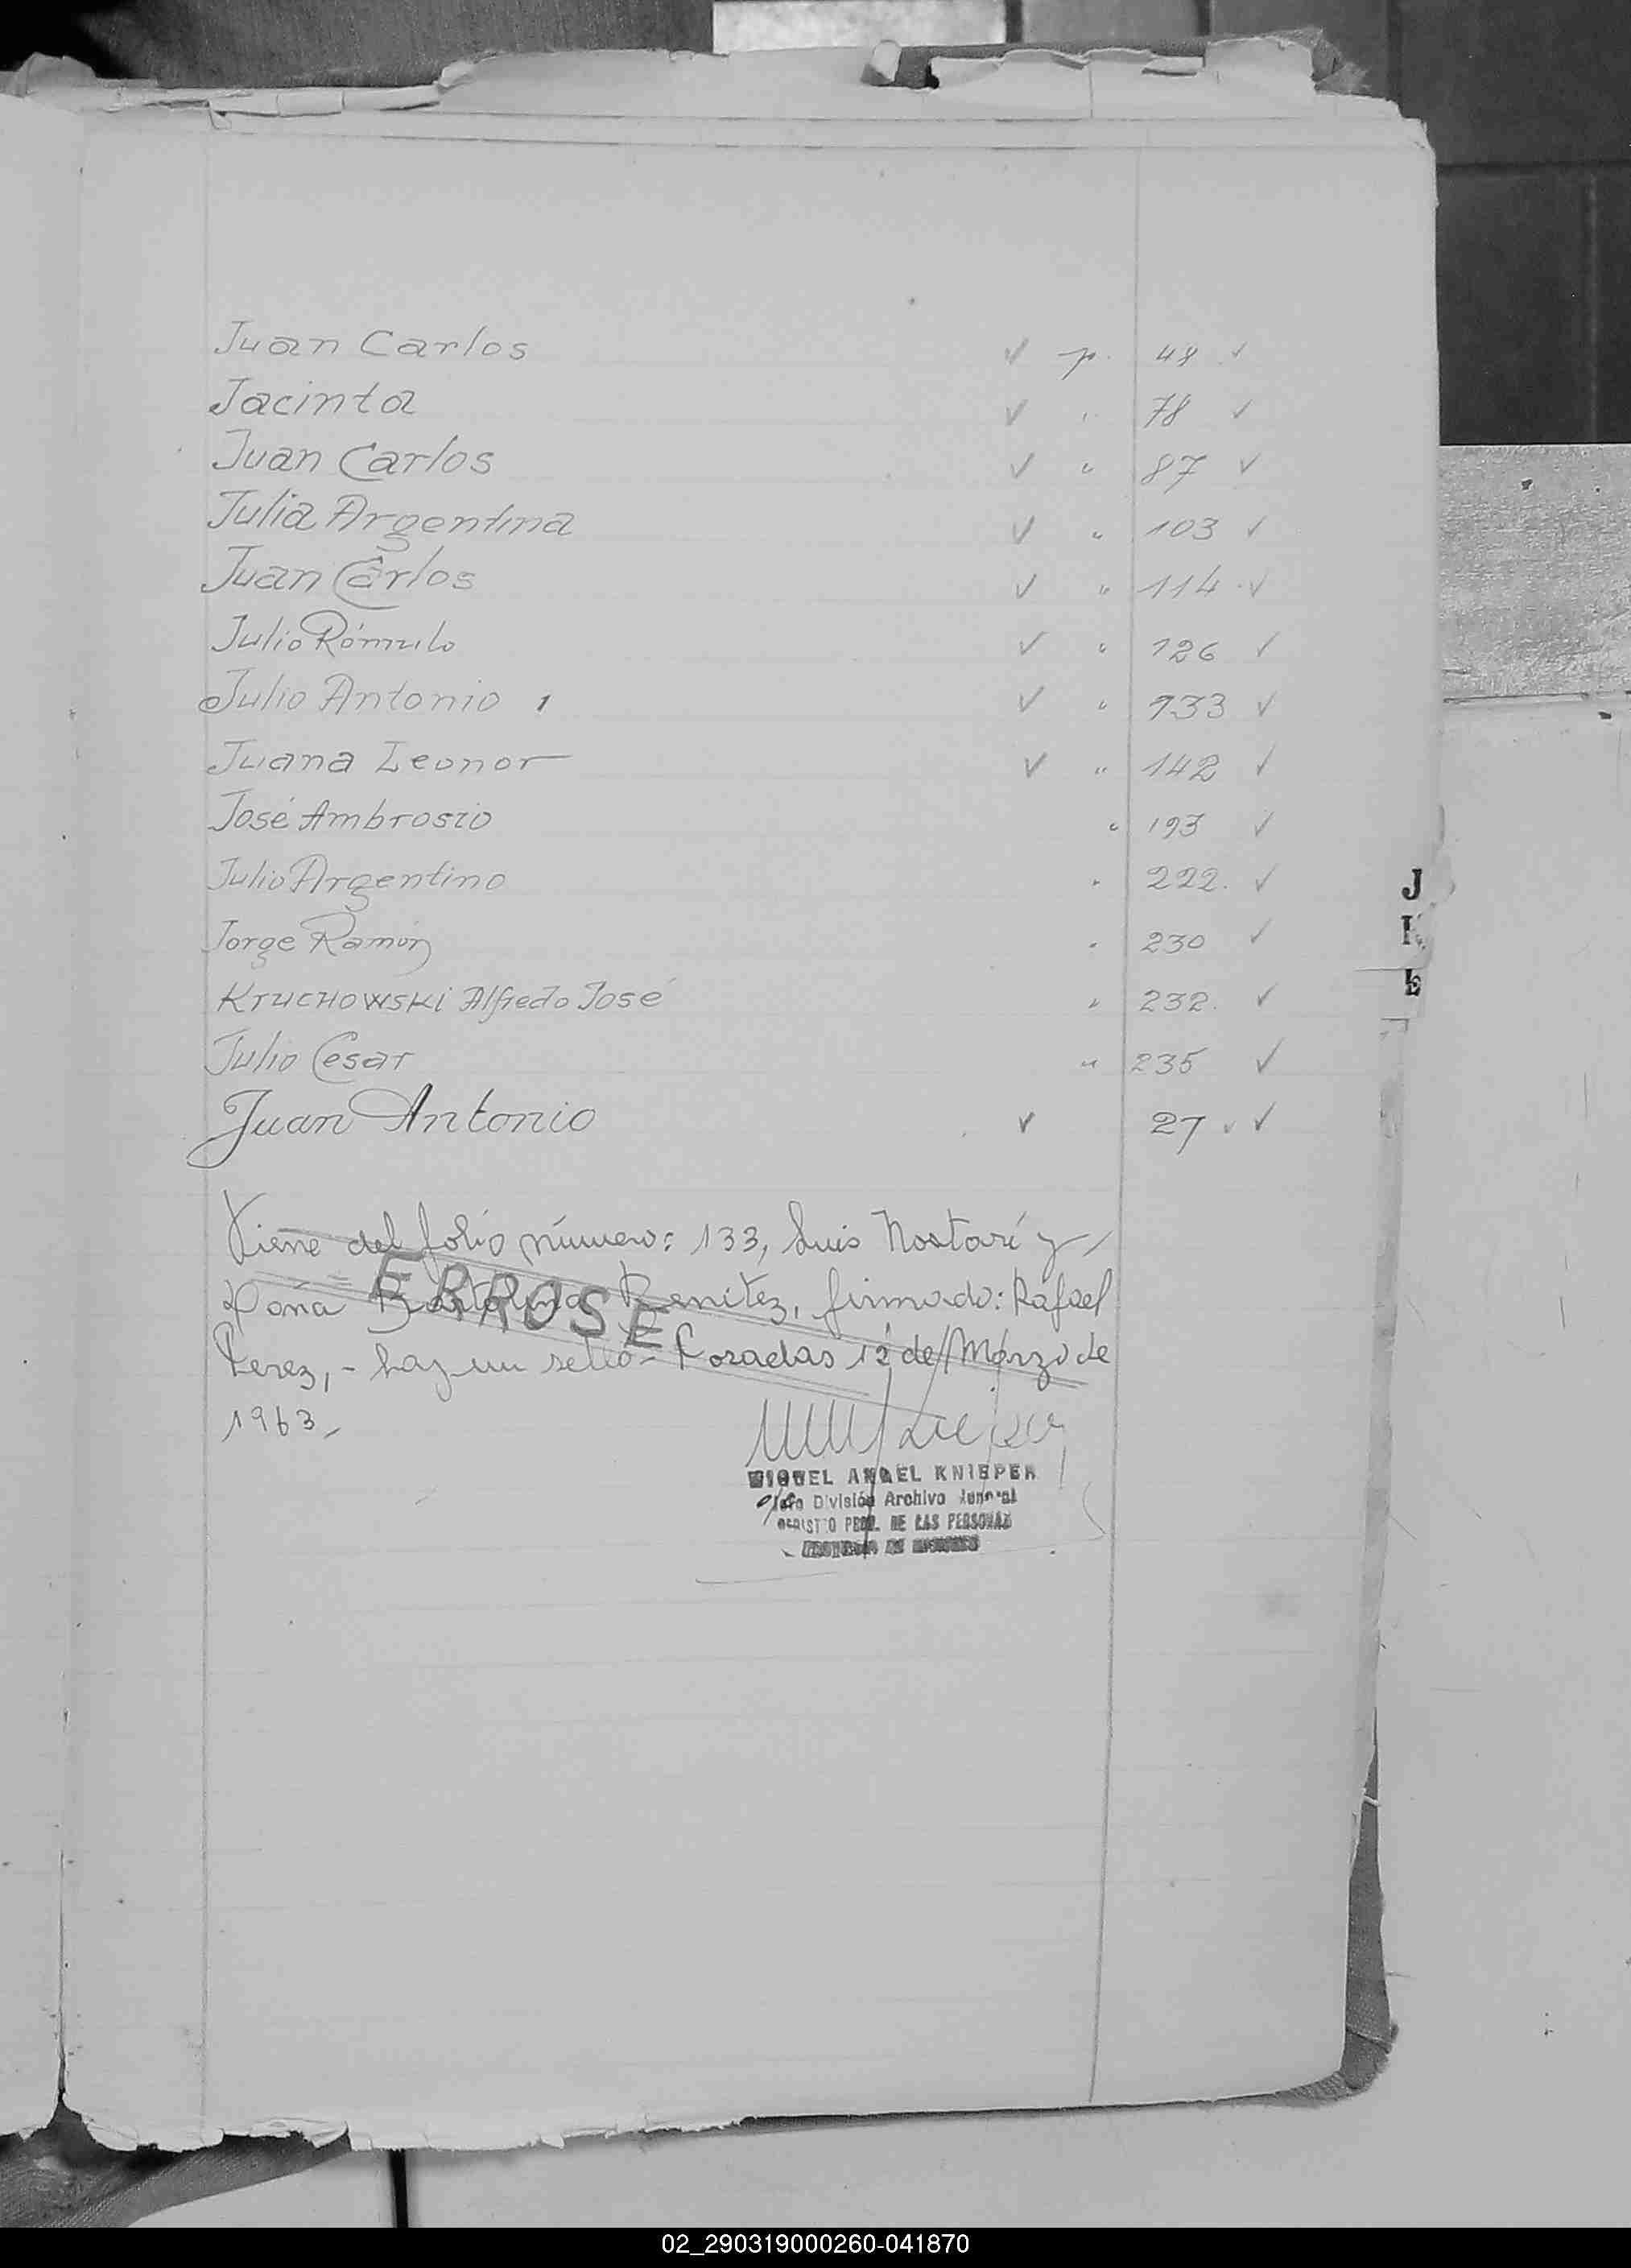 Juan Carlos ✓ p. 48 ✓
Jacinta ✓ " 78 ✓
Juan Carlos ✓ " 87 ✓
Julia Argentina ✓ " 103 ✓
Juan Carlos ✓ " 114 ✓
Julio Rómulo ✓ " 126 ✓
Julio Antonio 1 ✓ " 133 ✓
Juana Leonor ✓ " 142 ✓
José Ambrosio " 193 ✓
Julio Argentino " 222. ✓
Jorge Ramón " 230 ✓
Kruchowski Alfredo José " 232. ✓
Julio Cesar " 235 ✓
Juan Antonio ✓ 27 ✓ ✓
J
K
L
Viene del folio número: 133, Luis Nostari y
Doña Bartolina Benitez, firmado: Rafael
ERROSE
Perez,- hay un sello- Posadas 12 de Marzo de
1963
MIGUEL ANGEL KNIEPER
Jefe División Archivo General
REGISTRO PCIAL. DE LAS PERSONAS
PROVINCIA DE MISIONES
02_290319000260-041870